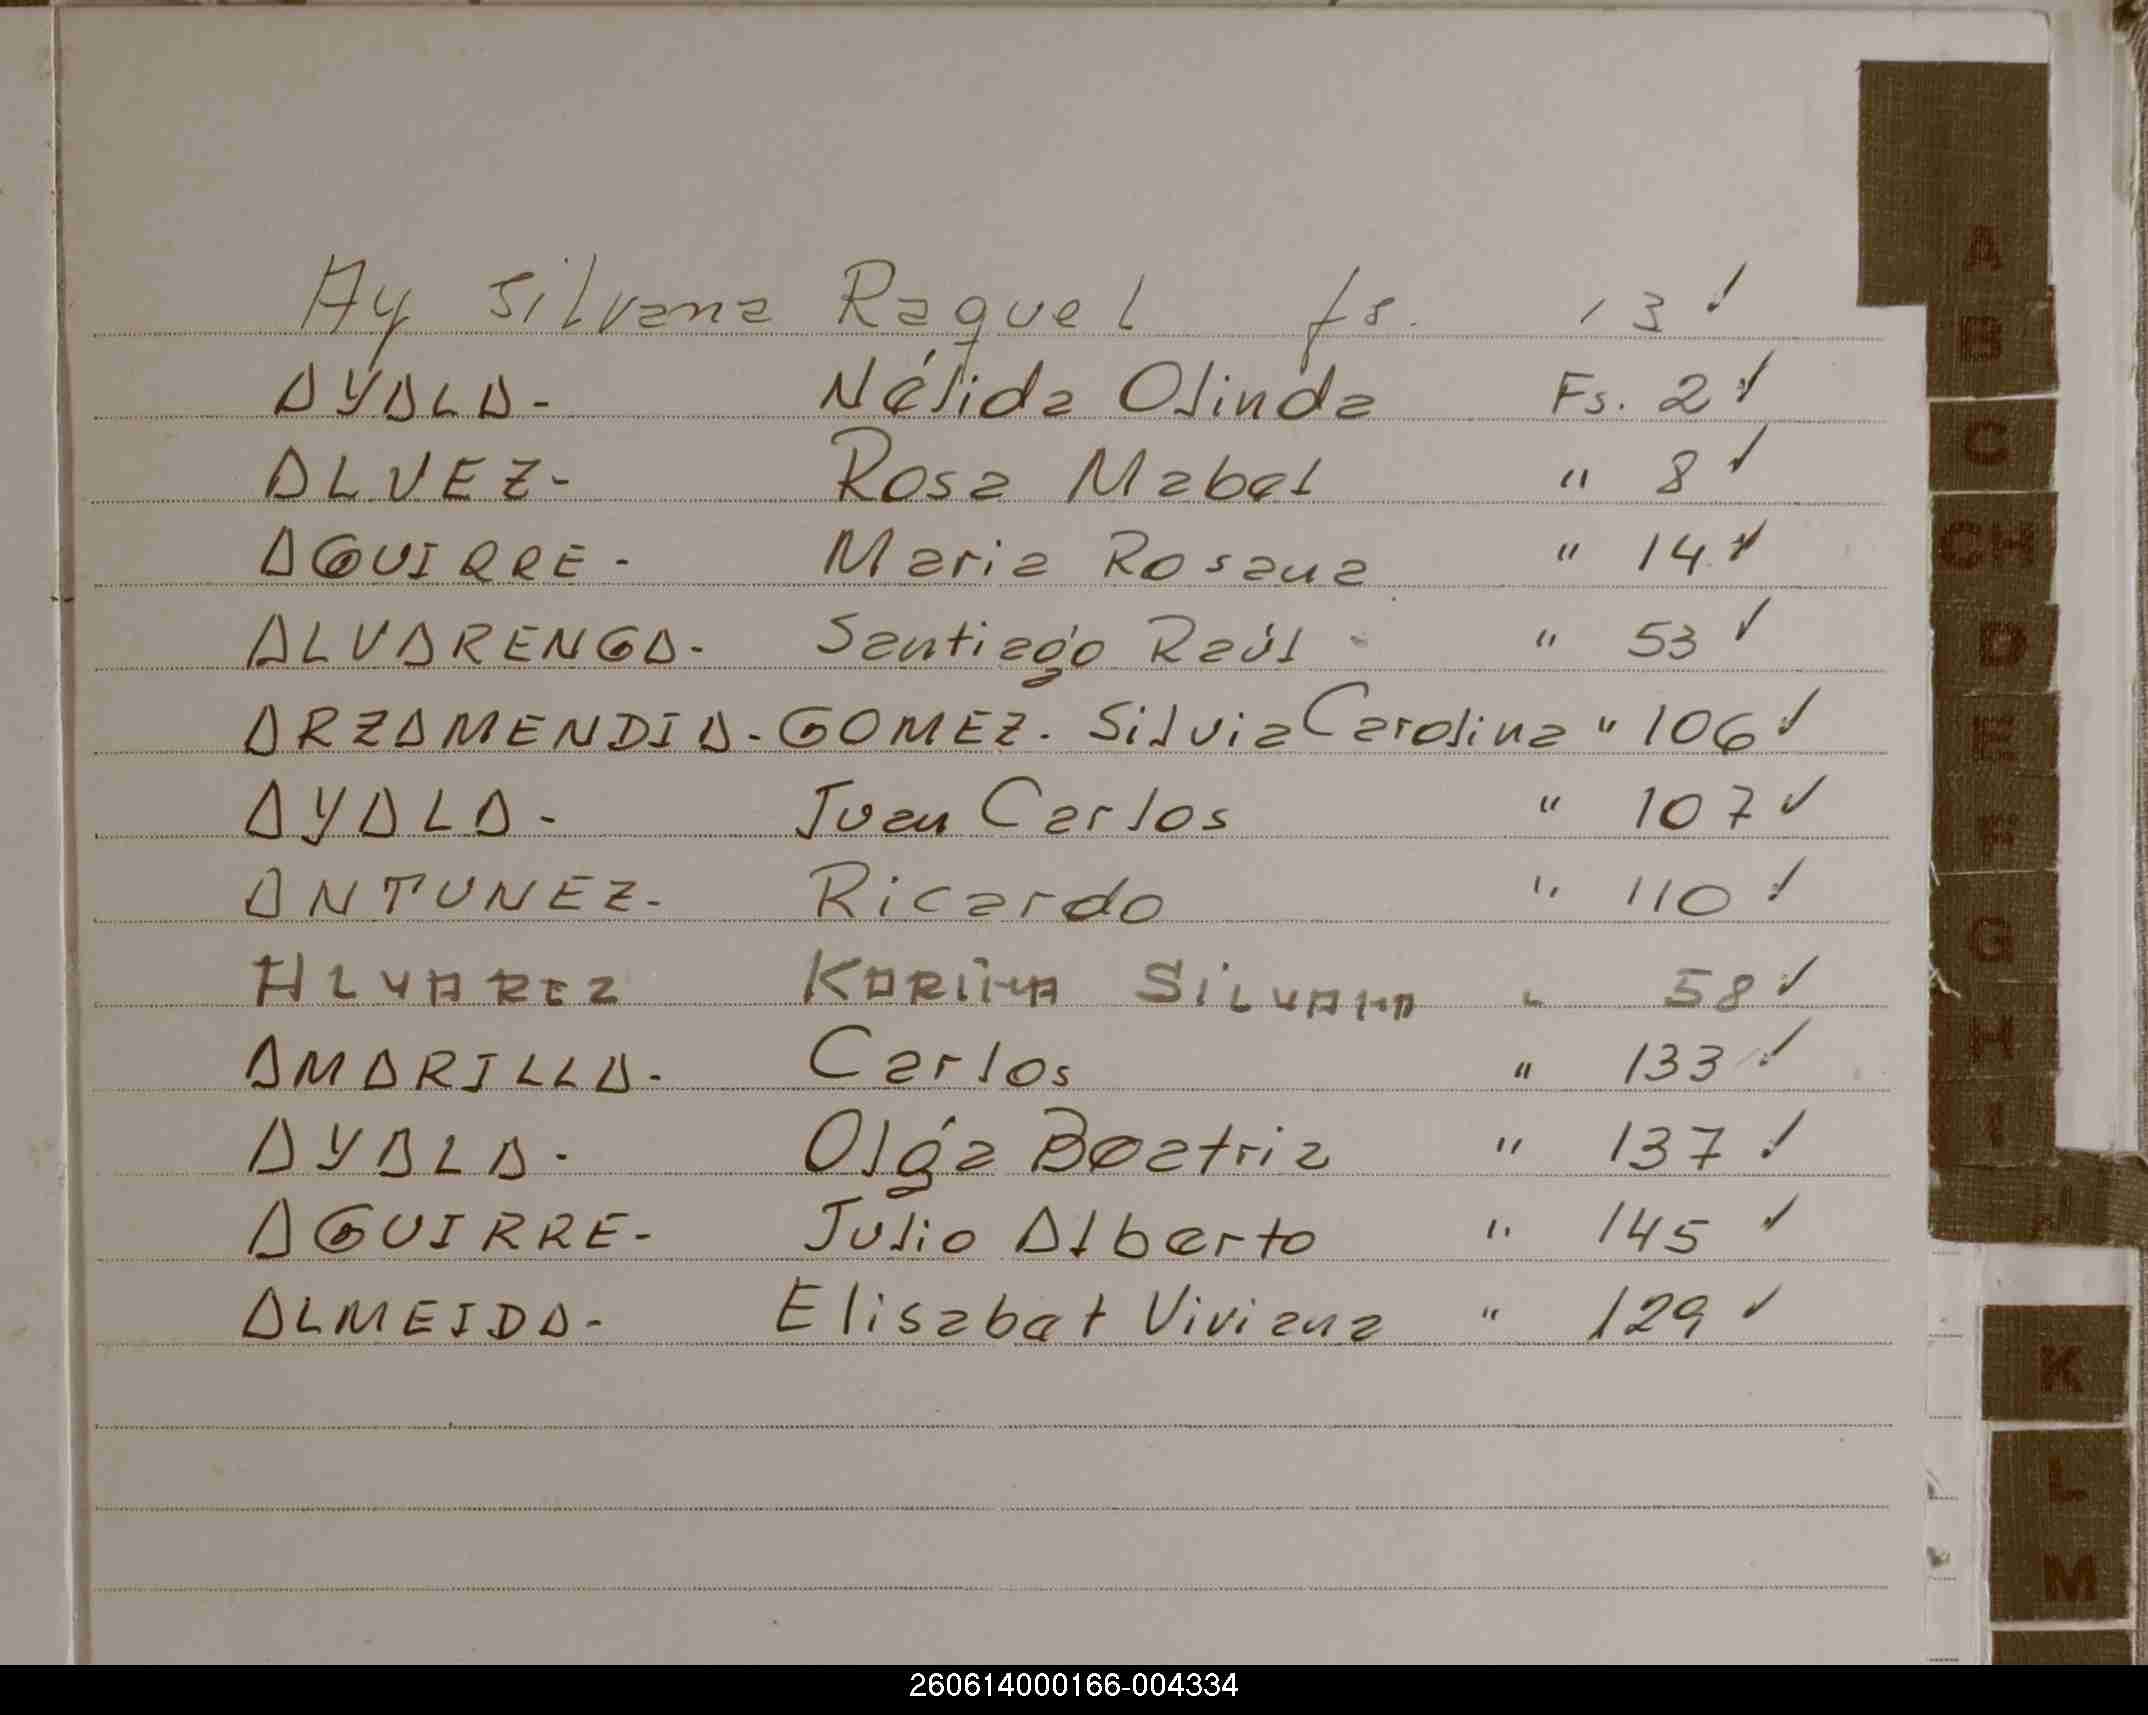 Ay Silvana Raquel fs. 13 ✓
AYALA- Nélida Olinda Fs. 2 ✓
ALVEZ- Rosa Mabel " 8 ✓
AGUIRRE- Maria Rosana " 14 ✓
ALVARENGA- Santiago Raúl " 53 ✓
ARZAMENDIA-GOMEZ. Silvia Carolina " 106 ✓
AYALA- Juan Carlos " 107 ✓
ANTUNEZ- Ricardo " 110 ✓
ALVAREZ KARINA SILVANA " 58 ✓
AMARILLA- Carlos " 133 ✓
AYALA- Olga Beatriz " 137 ✓
AGUIRRE- Julio Alberto " 145 ✓
ALMEIDA- Elisabet Viviana " 129 ✓
A
B
C
CH
D
E
F
G
H
I
J
K
L
M
260614000166-004334